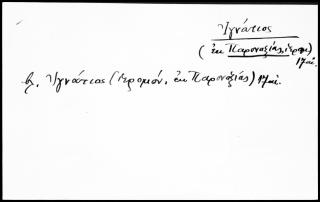 Ἰγνάτιος
(ἐκ Παροναξίας, ἱερομ.)
17 αἰ.
βλ. Ἰγνάτιος (ἱερομόν. ἐκ Παροναξίας) 17 αἰ.